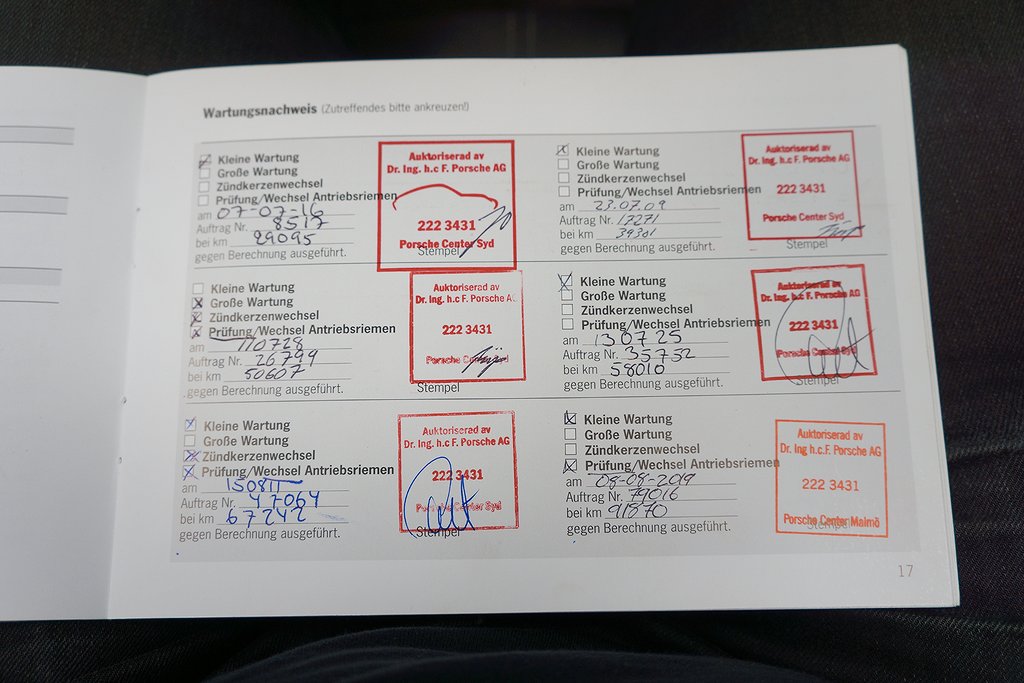 Wartungsnachweis (Zutreffendes bitte ankreuzen!)
Kleine Wartung
Große Wartung
Zündkerzenwechsel
Prüfung/Wechsel Antriebsriemen
am 07-07-16
Auftrag Nr. 8517
bei km 29095
gegen Berechnung ausgeführt.
Auktoriserad av
Dr. Ing. h.c F. Porsche AG
222 3431
Porsche Center Syd
Stempel
Kleine Wartung
Große Wartung
Zündkerzenwechsel
Prüfung/Wechsel Antriebsriemen
am 23.07.09
Auftrag Nr. 17271
bei km 39301
gegen Berechnung ausgeführt.
Auktoriserad av
Dr. Ing. h.c F. Porsche AG
222 3431
Porsche Center Syd
Stempel
Kleine Wartung
Große Wartung
Zündkerzenwechsel
Prüfung/Wechsel Antriebsriemen
am 110728
Auftrag Nr. 26799
bei km 50607
gegen Berechnung ausgeführt.
Auktoriserad av
Dr. Ing. h.c F. Porsche AG
222 3431
Porsche Center Syd
Stempel
Kleine Wartung
Große Wartung
Zündkerzenwechsel
Prüfung/Wechsel Antriebsriemen
am 130725
Auftrag Nr. 35752
bei km 58010
gegen Berechnung ausgeführt.
Auktoriserad av
Dr. Ing. h.c F. Porsche AG
222 3431
Porsche Center Syd
Stempel
Kleine Wartung
Große Wartung
Zündkerzenwechsel
Prüfung/Wechsel Antriebsriemen
am 150811
Auftrag Nr. 47064
bei km 67242
gegen Berechnung ausgeführt.
Auktoriserad av
Dr. Ing. h.c F. Porsche AG
222 3431
Porsche Center Syd
Stempel
Kleine Wartung
Große Wartung
Zündkerzenwechsel
Prüfung/Wechsel Antriebsriemen
am 08-08-2019
Auftrag Nr. 79016
bei km 91870
gegen Berechnung ausgeführt.
Auktoriserad av
Dr. Ing. h.c F. Porsche AG
222 3431
Porsche Center Malmö
Stempel
17